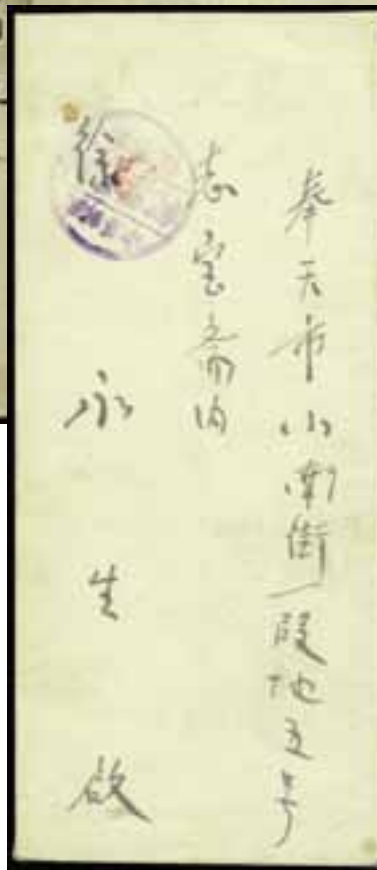 奉天市小南街一段地五号
志宝斋内
徐永生啟